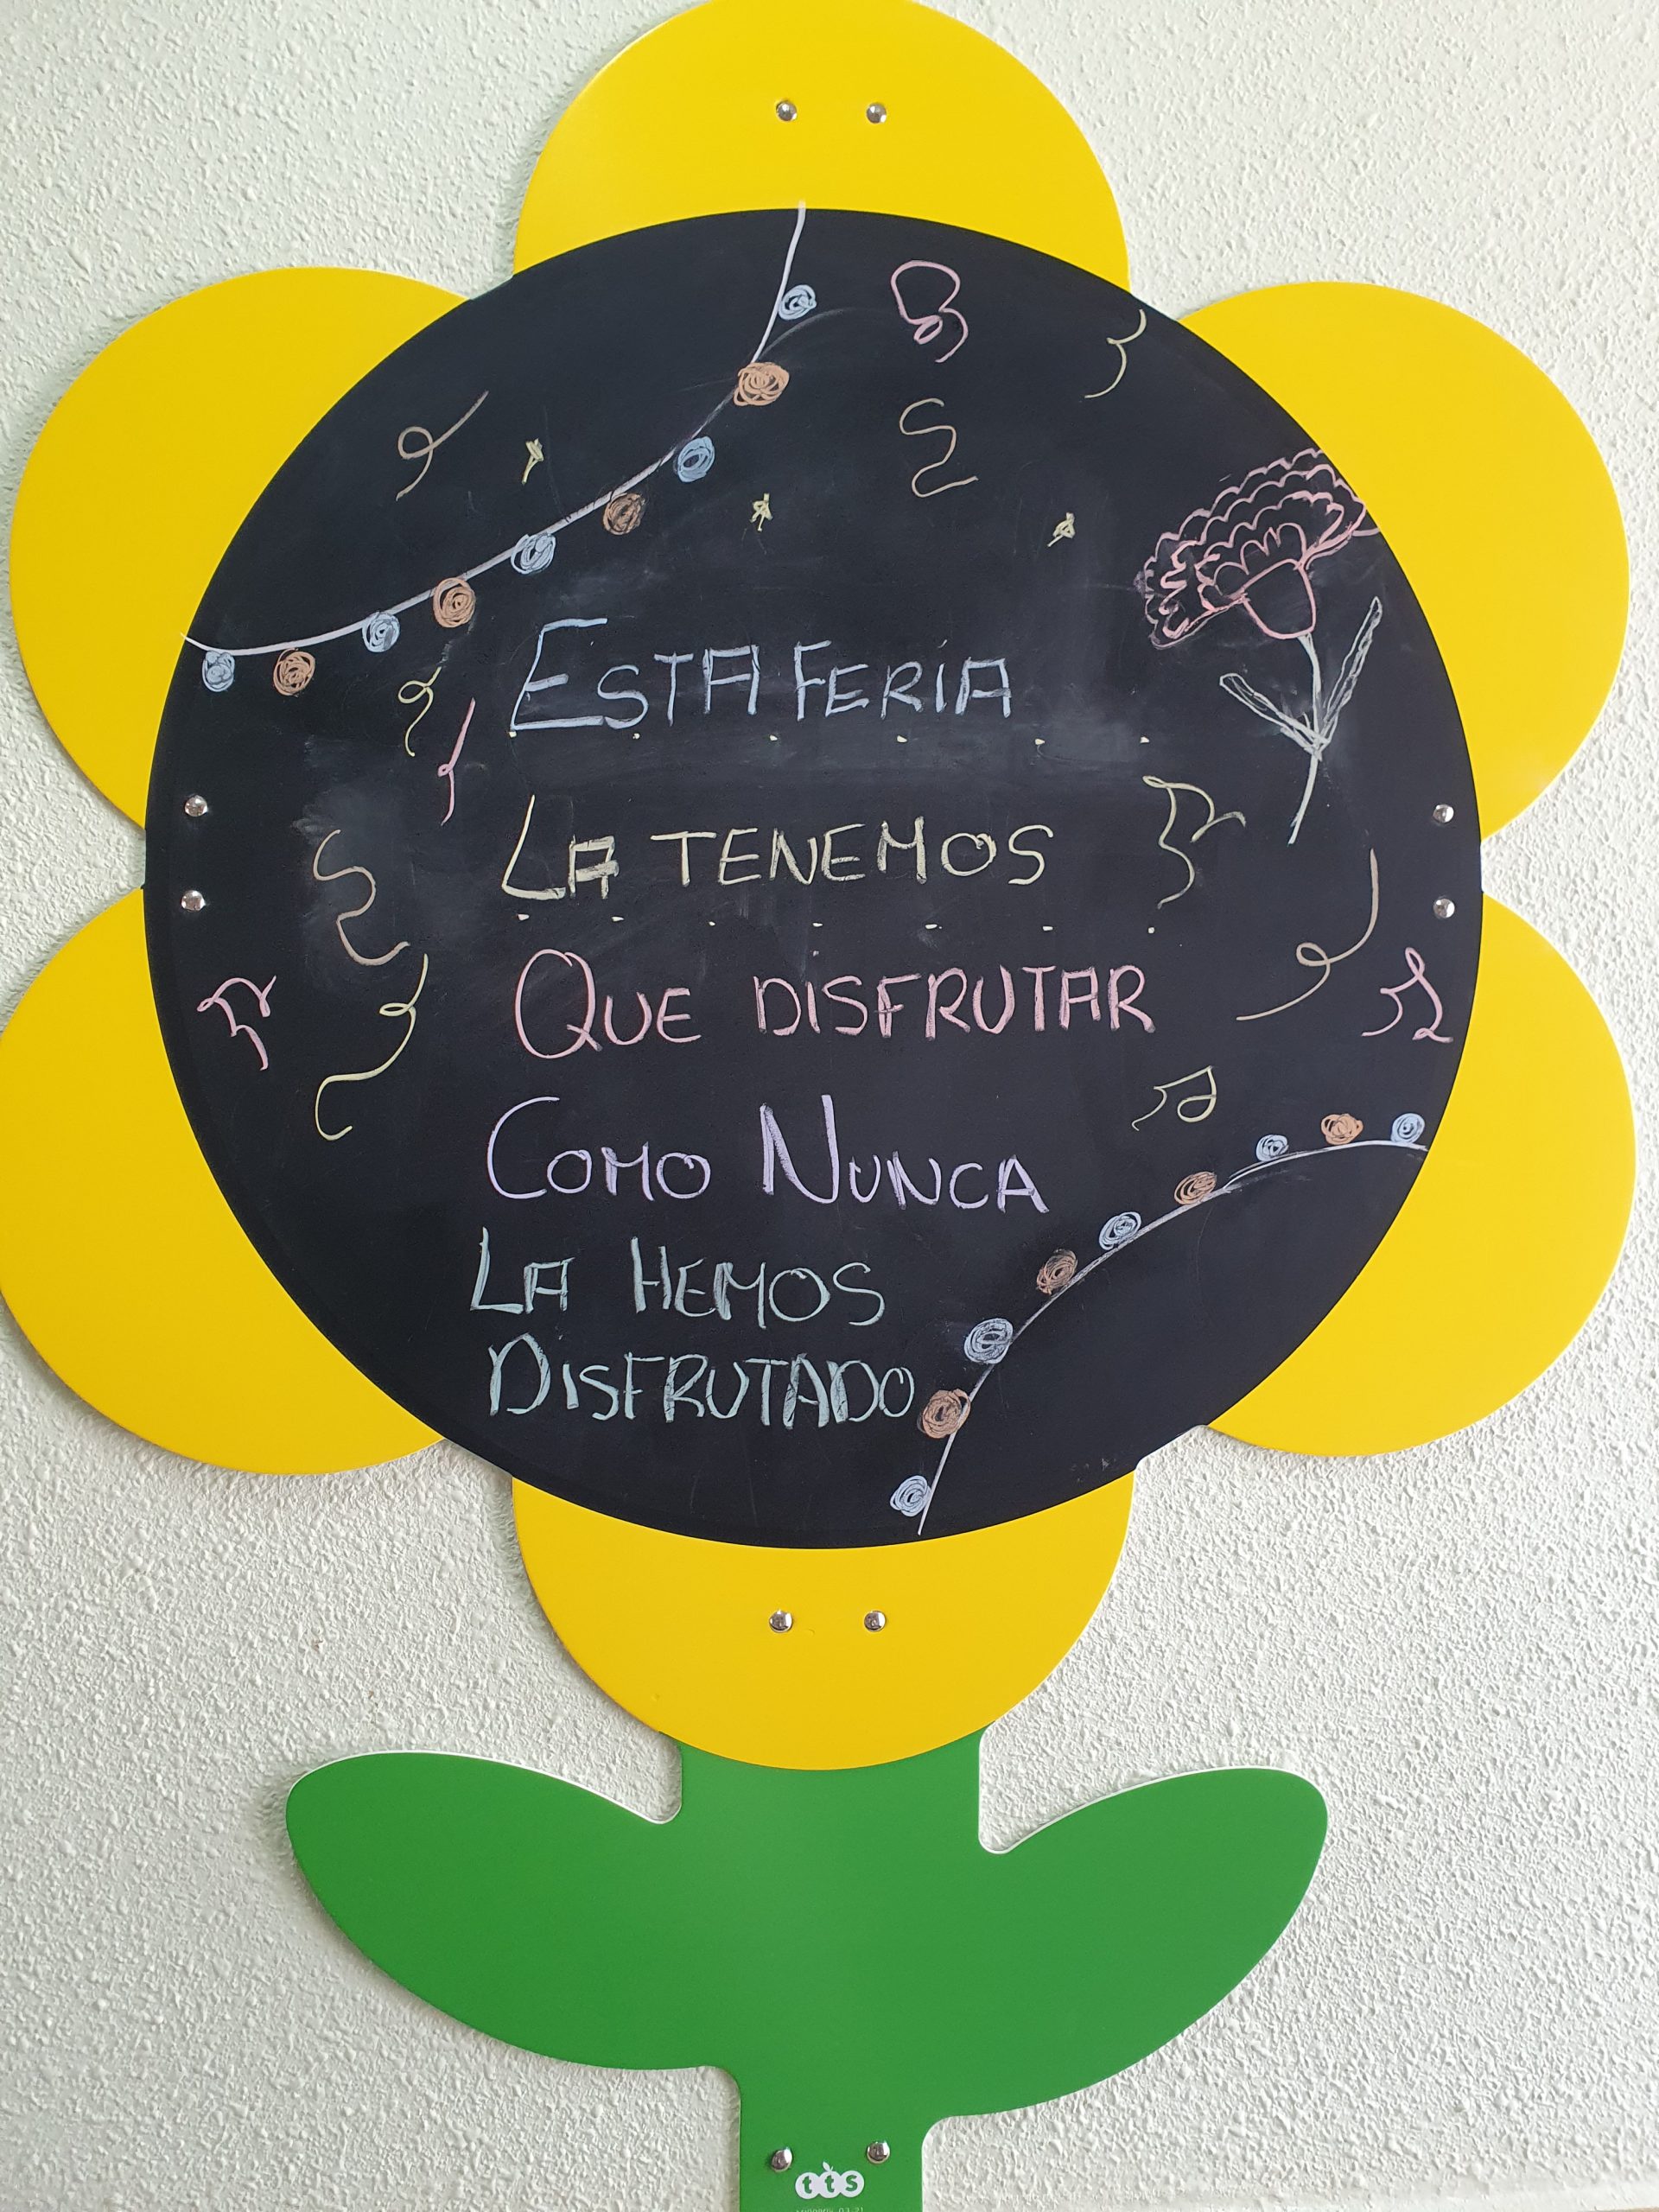 ESTA FERIA
LA TENEMOS
QUE DISFRUTAR
COMO NUNCA
LA HEMOS
DISFRUTADO
tts